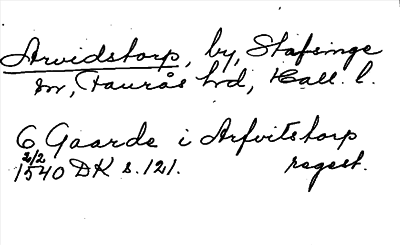 Arvidstorp, by, Stafsinge
sn, Faurås hd, Hall. l.
6 Gaarde i Arfvitstorp
2/2 1540 DK s. 121. regest.